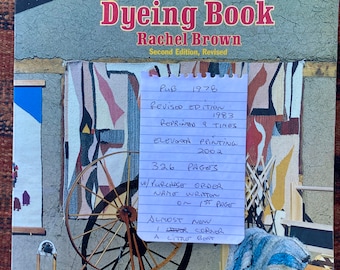 Dyeing Book
Rachel Brown
Second Edition, Revised
PUB 1978
REVISED EDITION
1983
REPRINTED 9 TIMES
ELEVENTH PRINTING
2002
326 PAGES
W/ PURCHASE ORDER
NAME WRITTEN
ON 1ST PAGE
ALMOST NEW
1 CORNER
A LITTLE BENT